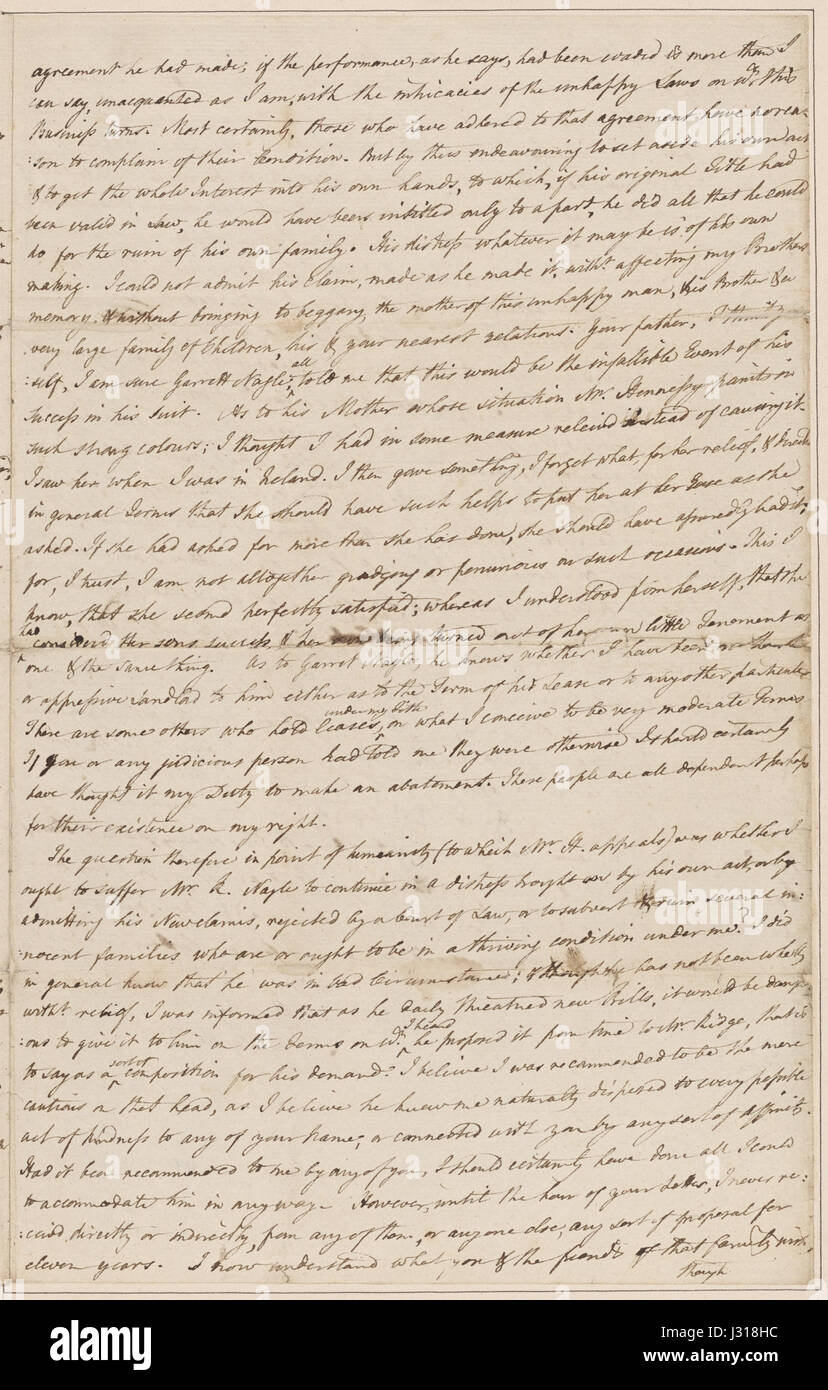 agreement he had made; if the performance, as he says, had been evaded is more than I
can say, unacquanted as I am, with the intricacies of the unhappy Laws on wch. this
Business turns. Most certainly, those who have adhered to that agreement have no rea-
:son to complain of their Condition. But by thus endeavouring to set aside his own act
& to get the whole Interest into his own hands, to which, if his original Title had
been valid in Law, he would have been intitled only to a part, he did all that he could
do for the ruin of his own family. His distress whatever it may be is of his own
making. I could not admit his Claim, made as he made it, witht. affecting my Brothers
memory, & without bringing to beggary, the mother of this unhappy man, his Brother & a
very large family of Children, his & your nearest relations. Your father,
:self, I am sure Garrett Nagle, all told me that this would be the infallible Event of his
success in his suit. As to his Mother whose situation Mr. Hennessy paints in
such strong colours; I thought I had in some measure releivd instead of causing it.
I saw her when I was in Ireland. I then gave something, I forget what, for her relief, & directed
in general Terms that she should have such helps to put her at her Ease as she
asked. If she had asked for more than she has done, she should have assuredly had it;
for, I trust, I am not altogether grudging or penurious on such occasions. This I
know, that she seemd perfectly satisfied; whereas I understood from herself, that she
had considerd Her sons success & her being turned out of her own little Tenement as
one & the same thing. As to Garret Nagle, he knows whether I have been an harsh
or oppressive Landlord to him either as to the Term of his Lease or to any other particular
There are some others who hold Leases under my Title, on what I conceive to be very moderate Terms
If you or any judicious person had told me they were otherwise I should certainly
have thought it my Duty to make an abatement. These people are all dependent perhaps
for their existence on my right.
The question therefore in point of humanity (to which Mr. H. appeals) was whether I
ought to suffer Mr. R. Nagle to continue in a distress brought on by his own act, or by
admitting his New claims, rejected by a Court of Law, or to subvert & ruin several in:
nocent families who are or ought to be in a thriving condition under me? I did
in general know that he was in bad Circumstances; & though he has not been wholly
witht. relief, I was informed that as he Daily threatned new Bills, it would be danger
:ous to give it to him on the terms on wch. I heard he proposed it from time to Mr. Ridge, that is
to say as a sort of composition for his demand. I believe I was recommended to be the more
cautious on that head, as I believe he knew me naturally disposed to every possible
act of kindness to any of your Name, or connected with you by any sort of affinity.
Had it been recommended to me by any of you, I should certainly have done all I could
to accommodate him in any way. However, until the hour of your Letter, I never re:
:ceivd, directly or indirectly, from any of them, or any one else, any sort of proposal for
eleven years. I now understand what you & the friends of that family wish,
though
alamy
Image ID: J318HC
www.alamy.com